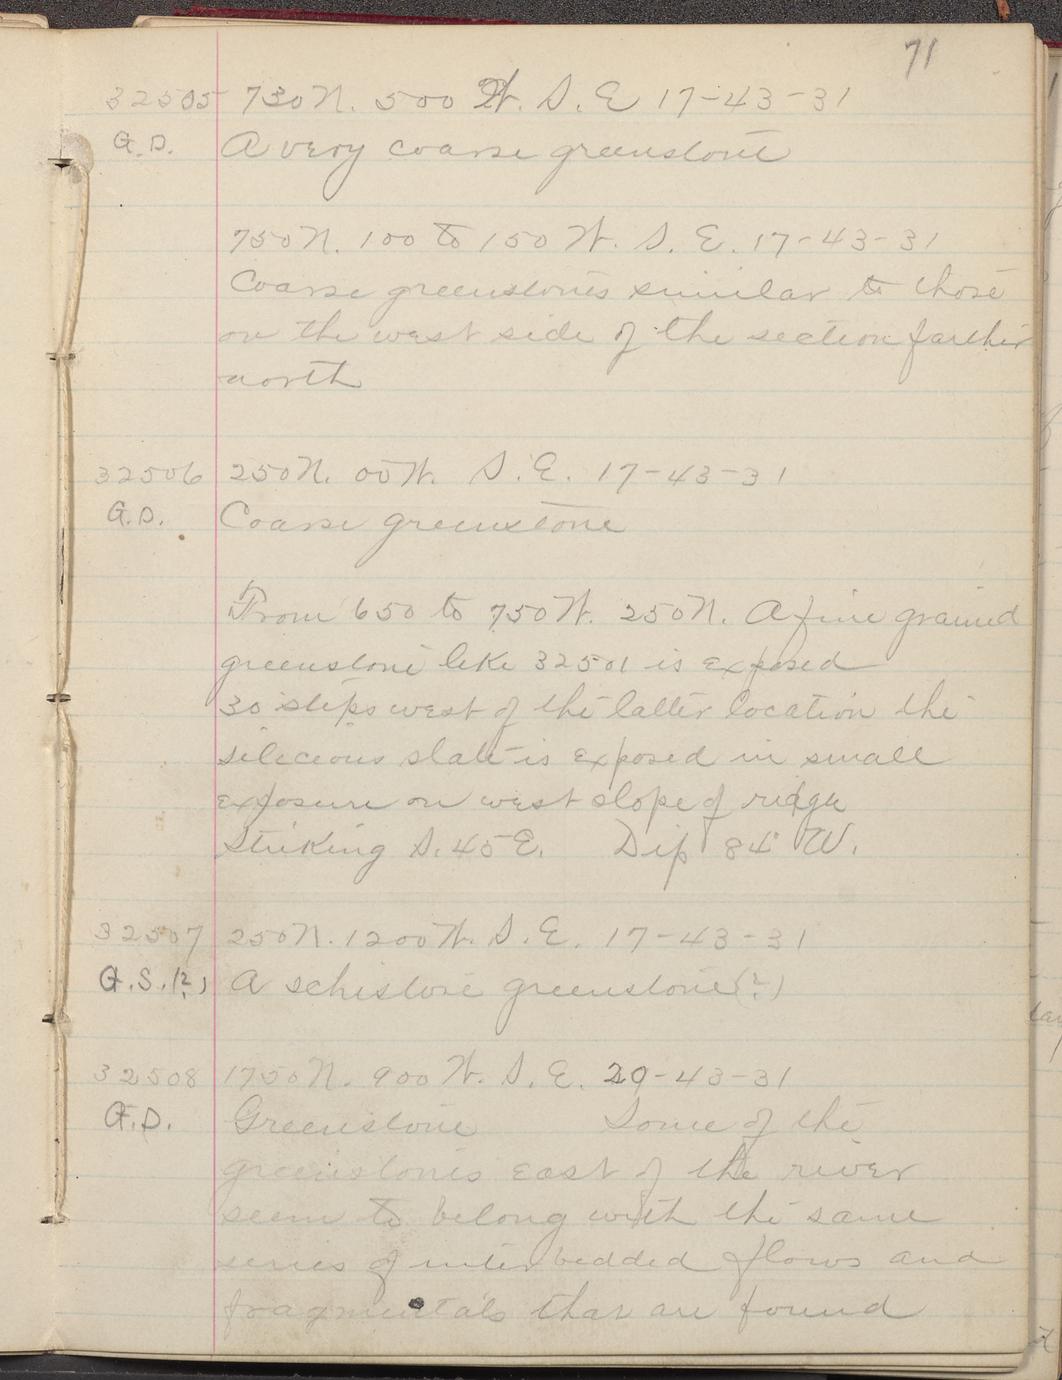 71
32505 730 N. 500 W. S.E 17-43-31
G.D. A very coarse greenstone
750 N. 100 to 150 W. S.E. 17-43-31
Coarse greenstones similar to those
on the west side of the section farther
north
32506 250 N. 00 W. S.E. 17-43-31
G.D. Coarse greenstone
From 650 to 750 W. 250 N. A fine grained
greenstone like 32501 is exposed
30 steps west of the latter location the
siliceous slate is exposed in small
exposure on west slope of ridge
Striking S. 45 E. Dip 84° W.
32507 250 N. 1200 W. S.E. 17-43-31
G.S.(?) A schistose greenstone (?)
32508 1750 N. 900 W. S.E. 29-43-31
G.D. Greenstone Some of the
greenstones east of the river
seem to belong with the same
series of inter bedded flows and
fragmentals that are found